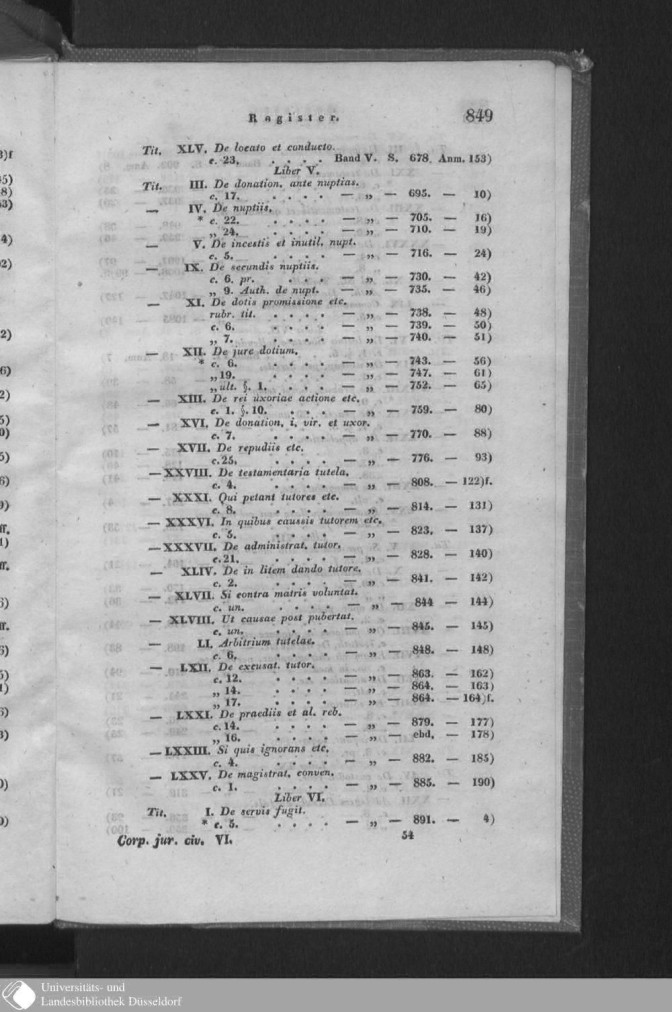 Register. 849
Tit. XLV. De locato et conducto.
c. 23. . . . . Band V. S. 678. Anm. 153)
Liber V.
Tit. III. De donation. ante nuptias.
c. 17. . . . . — „ — 695. — 10)
— IV. De nuptiis.
* c. 22. . . . . — „ — 705. — 16)
„ 24. . . . . — „ — 710. — 19)
— V. De incestis et inutil. nupt.
c. 5. . . . . — „ — 716. — 24)
— IX. De secundis nuptiis.
c. 6. pr. . . . — „ — 730. — 42)
„ 9. Auth. de nupt. — „ — 735. — 46)
— XI. De dotis promissione etc.
rubr. tit. . . . . — „ — 738. — 48)
c. 6. . . . . — „ — 739. — 50)
„ 7. . . . . — „ — 740. — 51)
— XII. De jure dotium.
* c. 6. . . . . — „ — 743. — 56)
„ 19. . . . . — „ — 747. — 61)
„ ult. §. 1. . . . — „ — 752. — 65)
— XIII. De rei uxoriae actione etc.
c. 1. §. 10. . . . — „ — 759. — 80)
— XVI. De donation. i. vir. et uxor.
c. 7. . . . . — „ — 770. — 88)
— XVII. De repudiis etc.
c. 25. . . . . — „ — 776. — 93)
— XXVIII. De testamentaria tutela.
c. 4. . . . . — „ — 808. — 122)f.
— XXXI. Qui petant tutores etc.
c. 8. . . . . — „ — 814. — 131)
— XXXVI. In quibus caussis tutorem etc.
c. 5. . . . . — „ — 823. — 137)
— XXXVII. De administrat. tutor.
c. 21. . . . . — „ — 828. — 140)
— XLIV. De in litem dando tutore.
c. 2. . . . . — „ — 841. — 142)
— XLVII. Si contra matris voluntat.
c. un. . . . . — „ — 844 — 144)
— XLVIII. Ut causae post pubertat.
c. un. . . . . — „ — 845. — 145)
— LI. Arbitrium tutelae.
c. 6. . . . . — „ — 848. — 148)
— LXII. De excusat. tutor.
c. 12. . . . . — „ — 863. — 162)
„ 14. . . . . — „ — 864. — 163)
„ 17. . . . . — „ — 864. — 164)f.
— LXXI. De praediis et al. reb.
c. 14. . . . . — „ — 879. — 177)
„ 16. . . . . — „ — ebd. — 178)
— LXXIII. Si quis ignorans etc.
c. 4. . . . . — „ — 882. — 185)
— LXXV. De magistrat. conven.
c. 1. . . . . — „ — 885. — 190)
Liber VI.
Tit. I. De servis fugit.
* c. 5. . . . . — „ — 891. — 4)
Corp. jur. civ. VI. 54
Universitäts- und
Landesbibliothek Düsseldorf